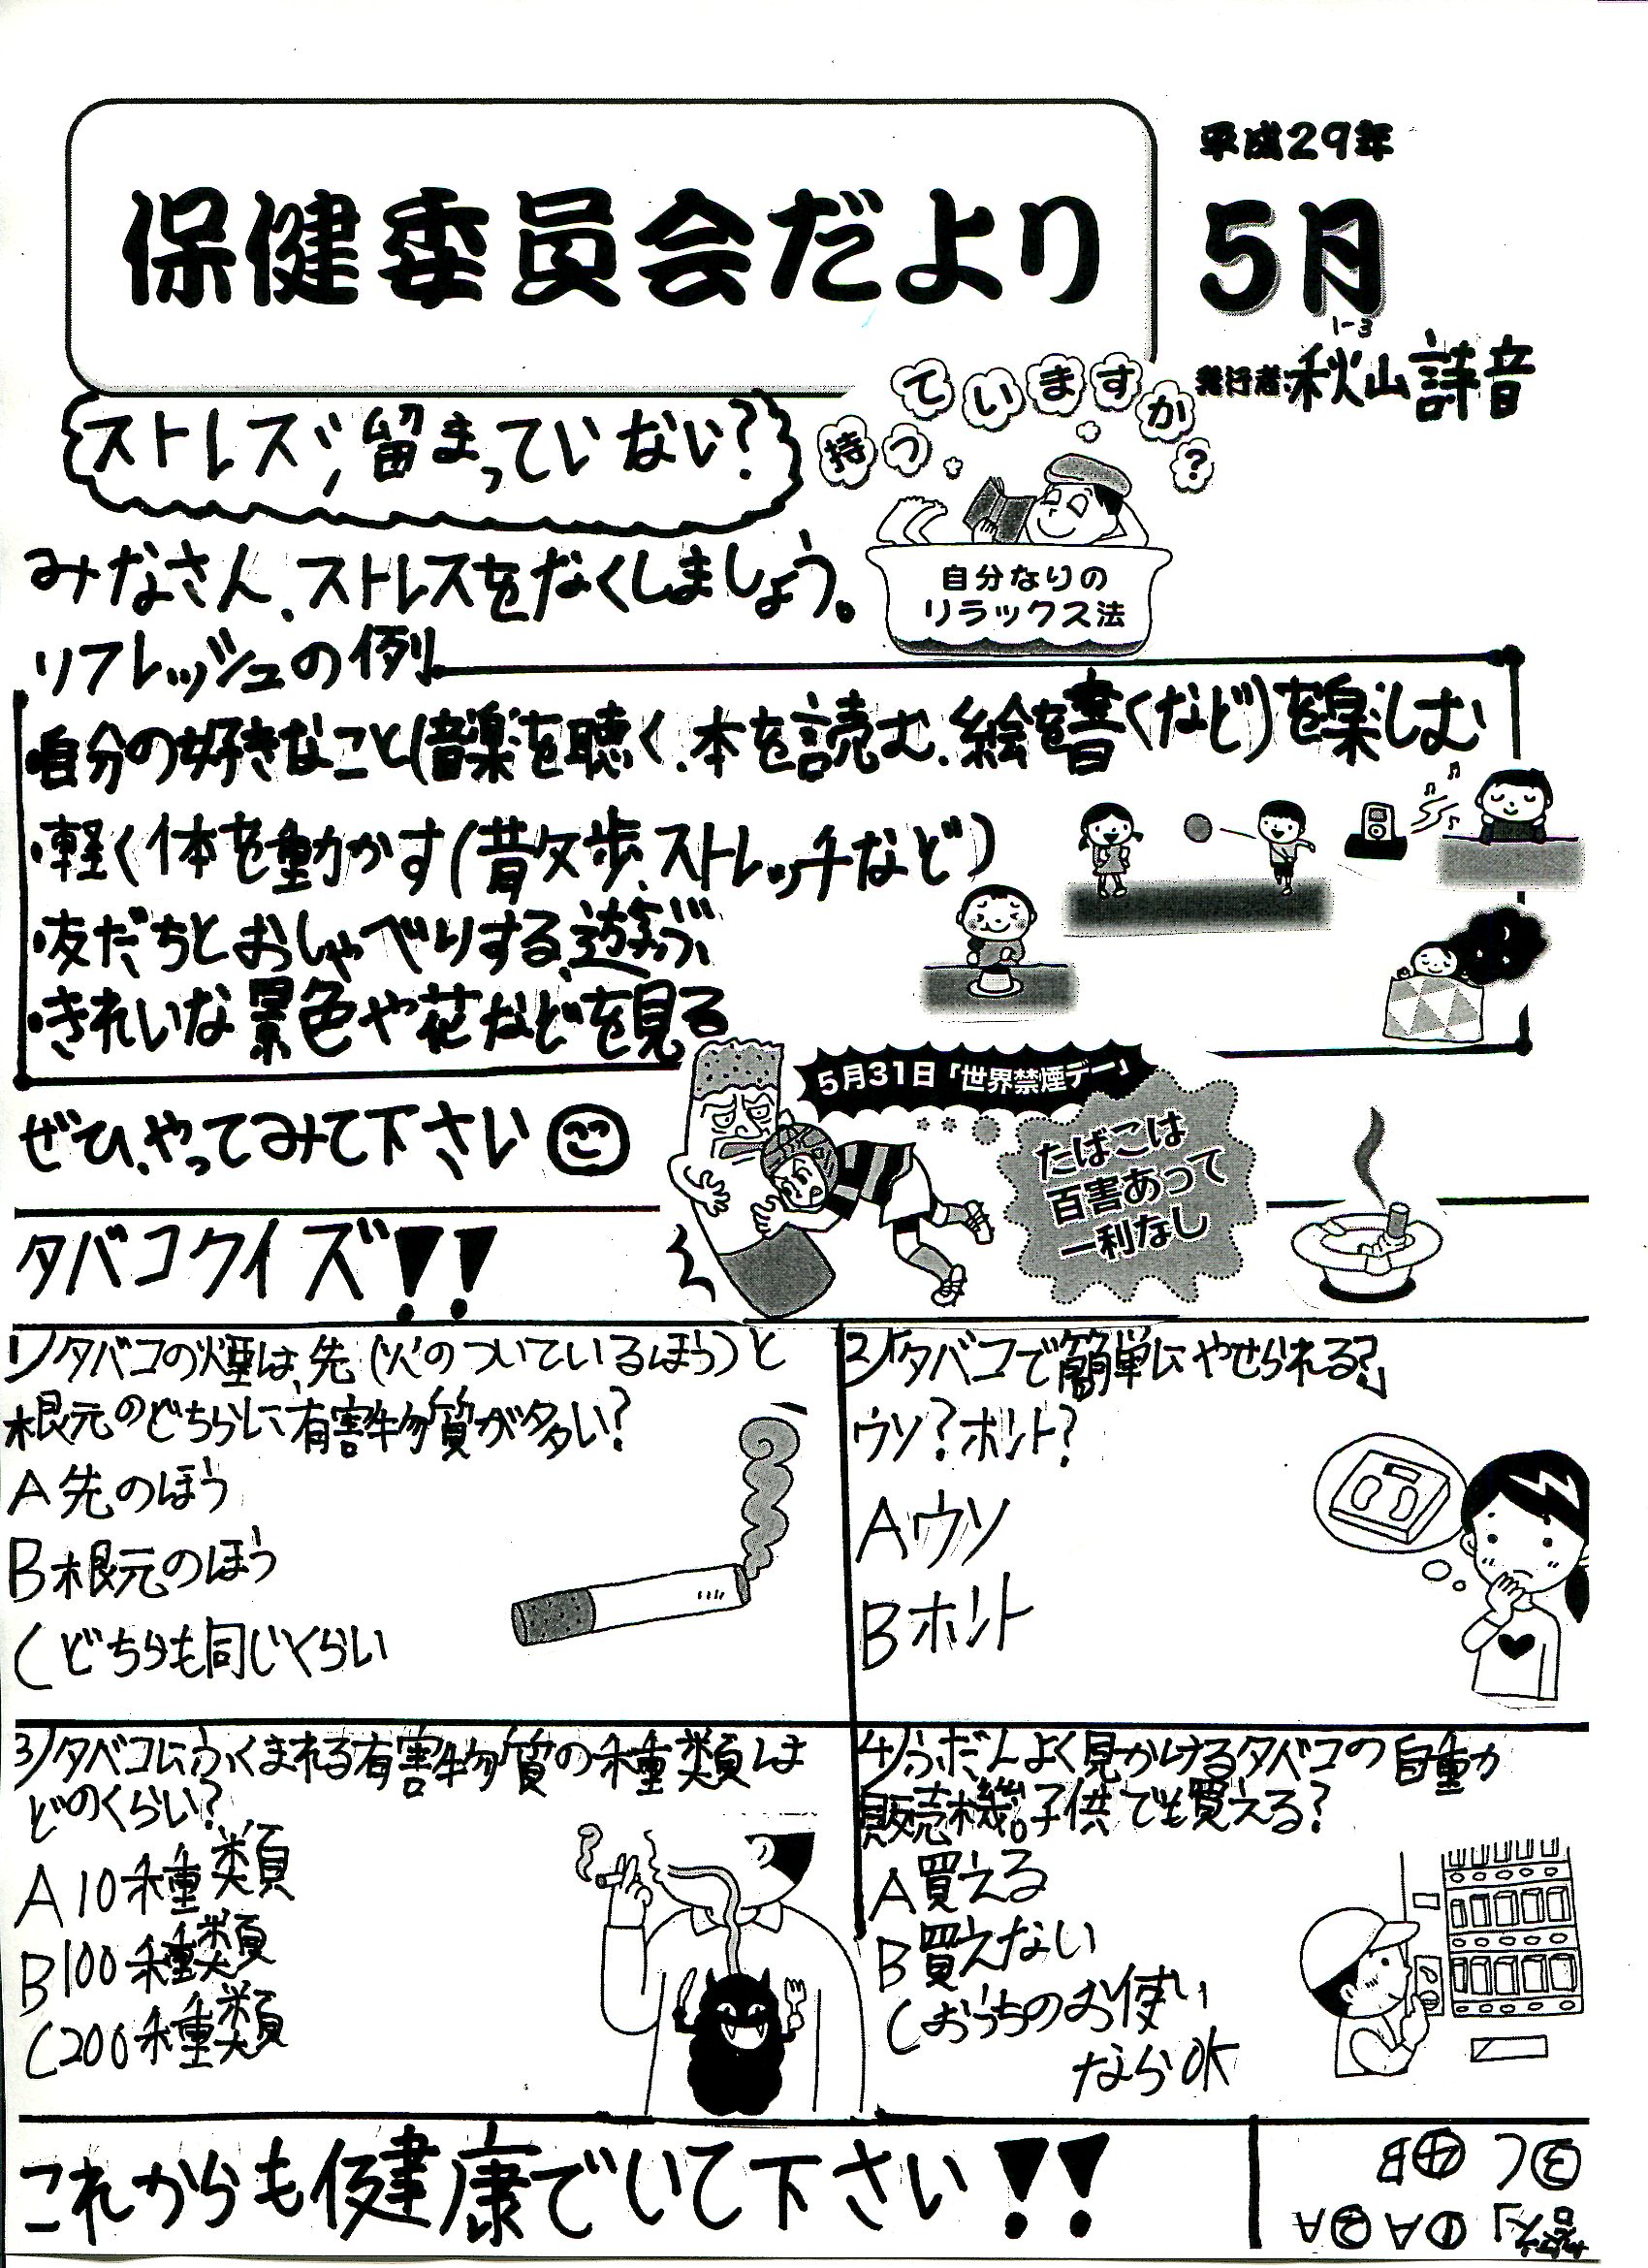 保健委員会だより
平成29年
5月
1-3
発行者:秋山詩音
ストレス、留まっていない?
持っていますか?
自分なりの
リラックス法
みなさん、ストレスをなくしましょう。
リフレッシュの例
・自分の好きなこと(音楽を聴く、本を読む、絵を書くなど)を楽しむ
・軽く体を動かす(散歩、ストレッチなど)
・友だちとおしゃべりする、遊ぶ
・きれいな景色や花などを見る
ぜひ、やってみて下さい
5月31日「世界禁煙デー」
たばこは
百害あって
一利なし
タバコクイズ!!
1)タバコの煙は、先(火のついているほう)と
根元のどちらに有害物質が多い?
A 先のほう
B 根元のほう
C どちらも同じくらい
2)「タバコで簡単にやせられる?」
ウソ?ホント?
A ウソ
B ホント
3)タバコにふくまれる有害物質の種類は
どのくらい?
A 10種類
B 100種類
C 200種類
4)ふだんよく見かけるタバコの自動
販売機。子供でも買える?
A 買える
B 買えない
C おうちのお使い
ならOK
これからも健康でいて下さい!!
答え ①A ②A
③C ④B